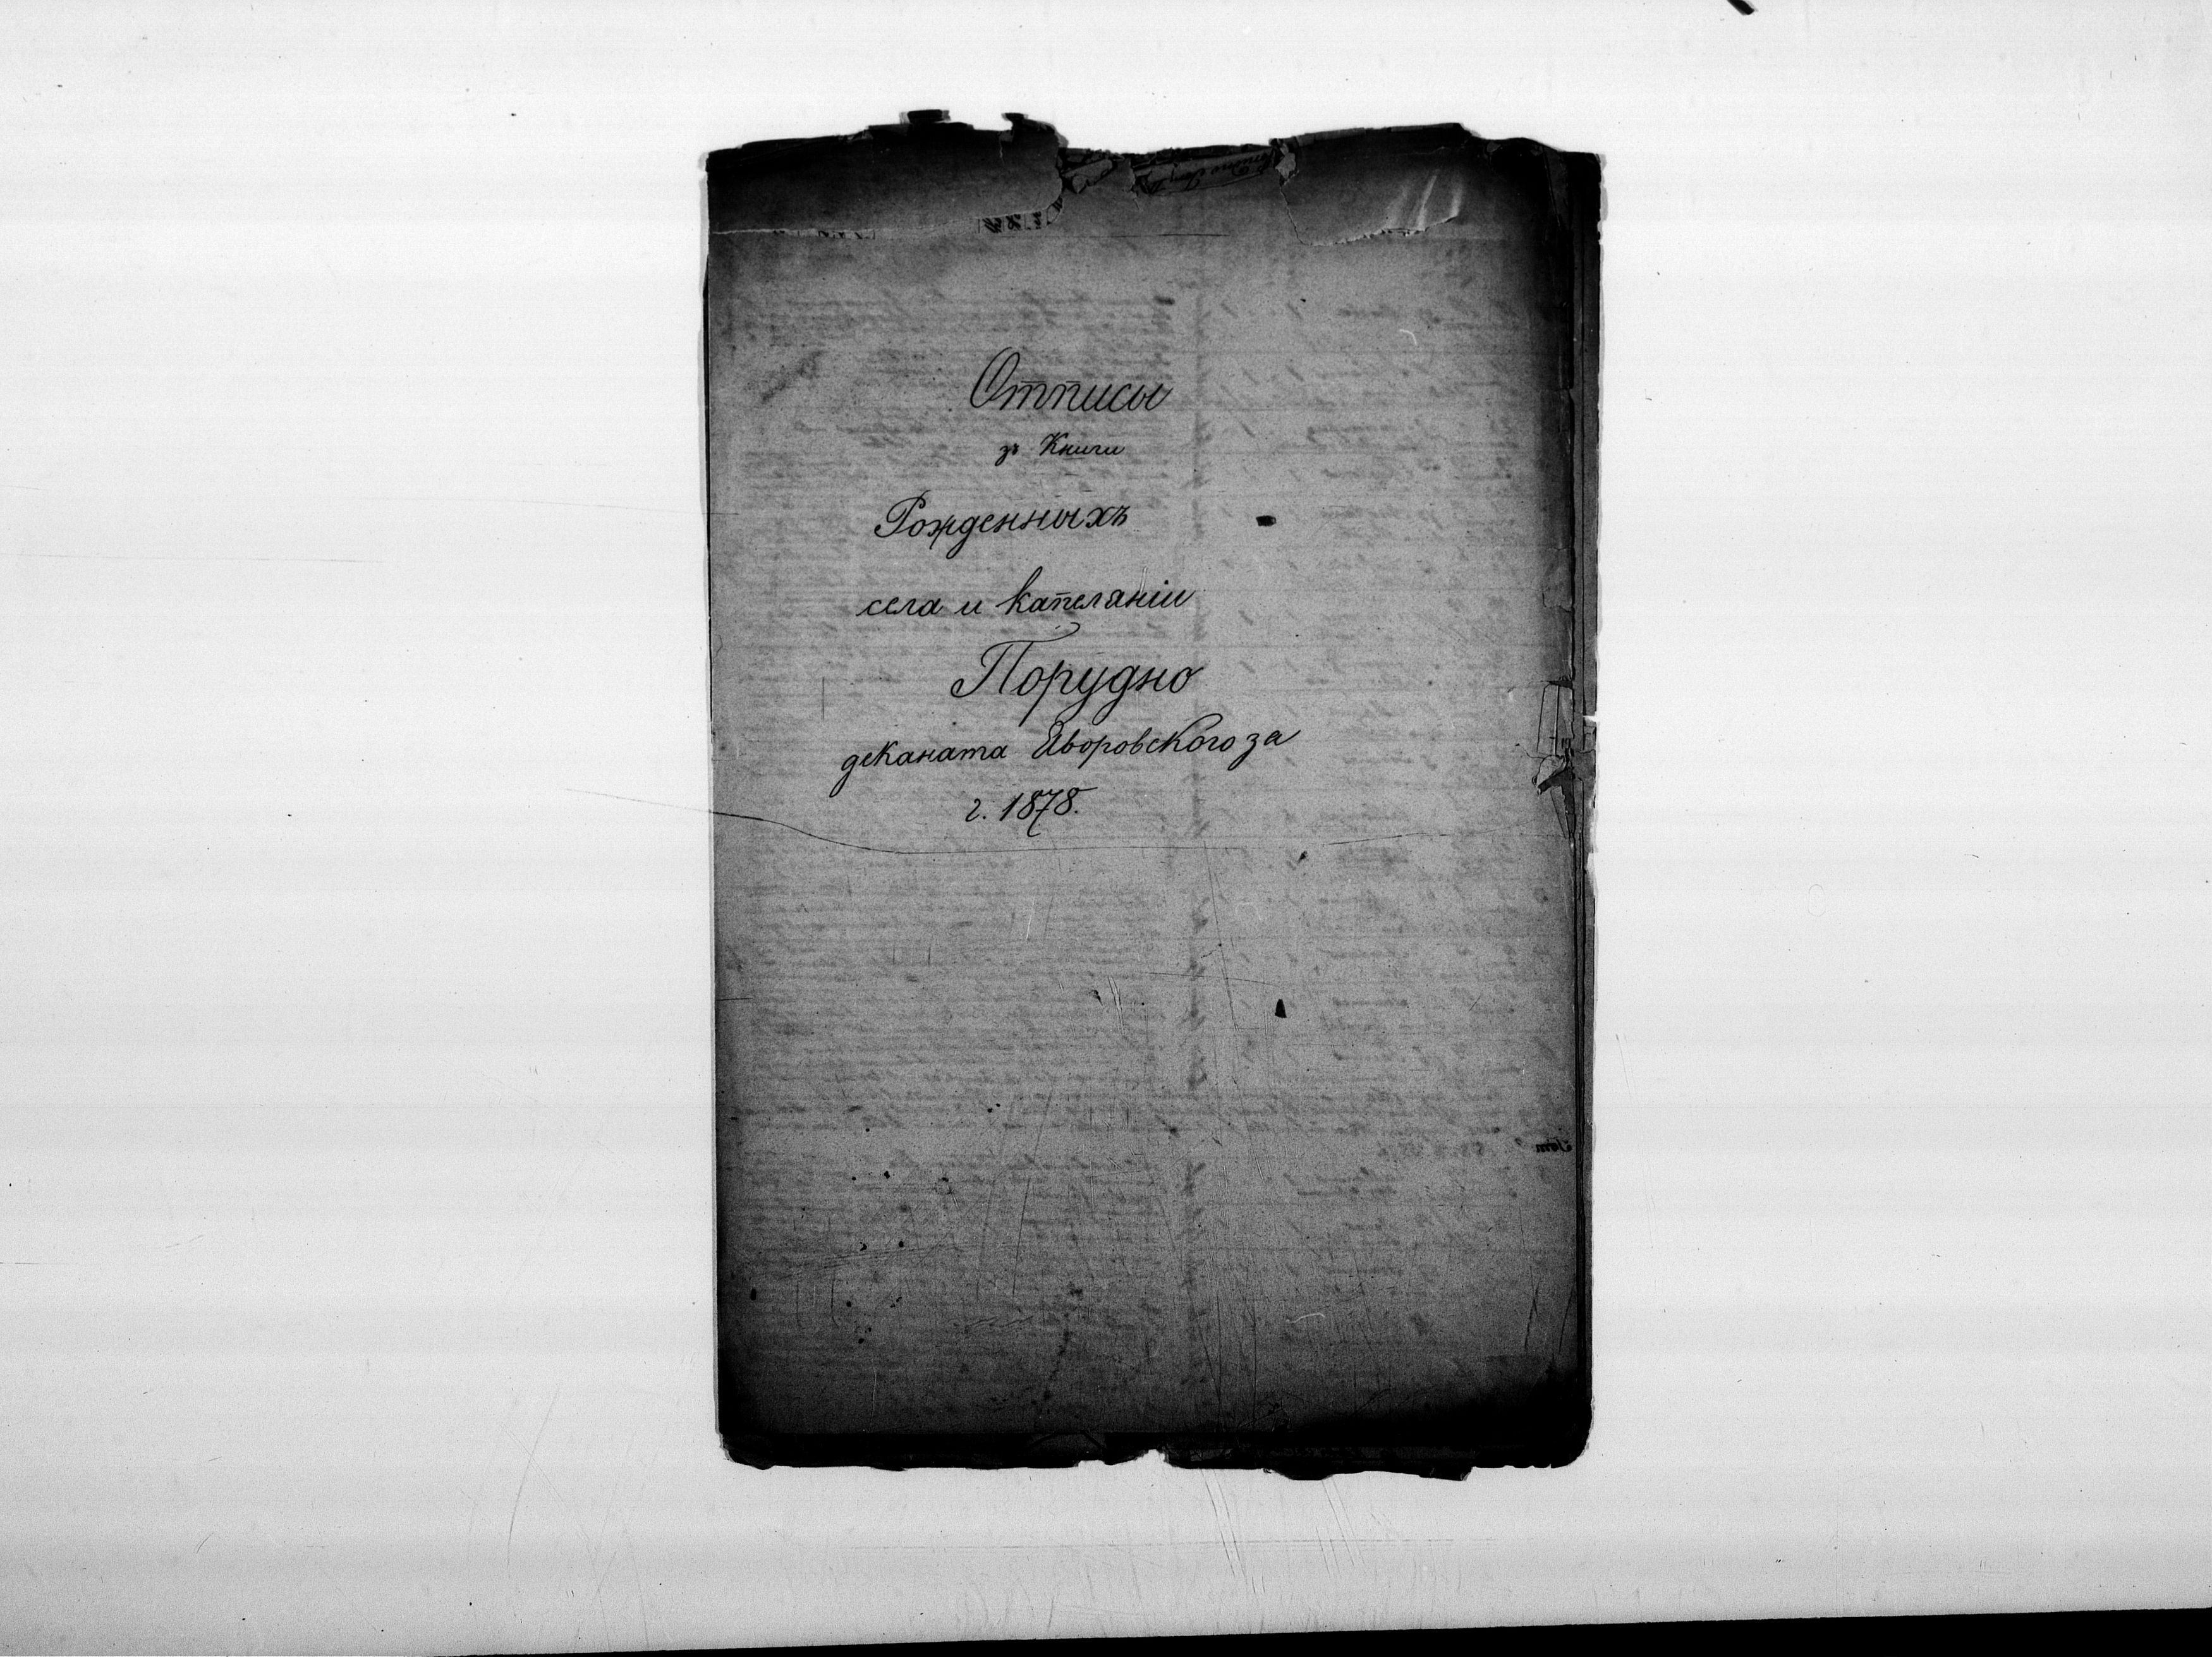 Отписы
зъ Книги
Рожденныхъ
села и капеляніи
Порудно
деканата Яворовского за
г. 1878.